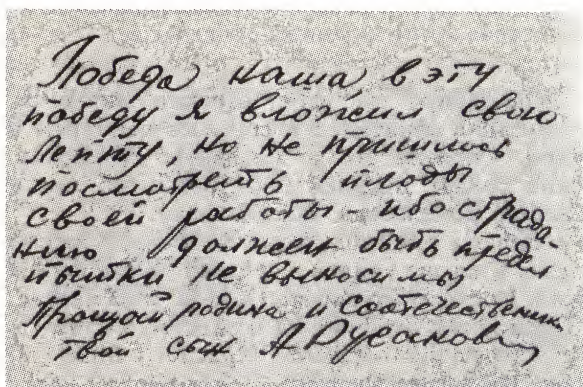 Победа наша, в эту
победу я вложил свою
лепту, но не пришлось
посмотреть плоды
своей работы – ибо страда-
нию должен быть предел
пытки не выносимы
Прощай родина и соотечественники
твой сын А Русанов